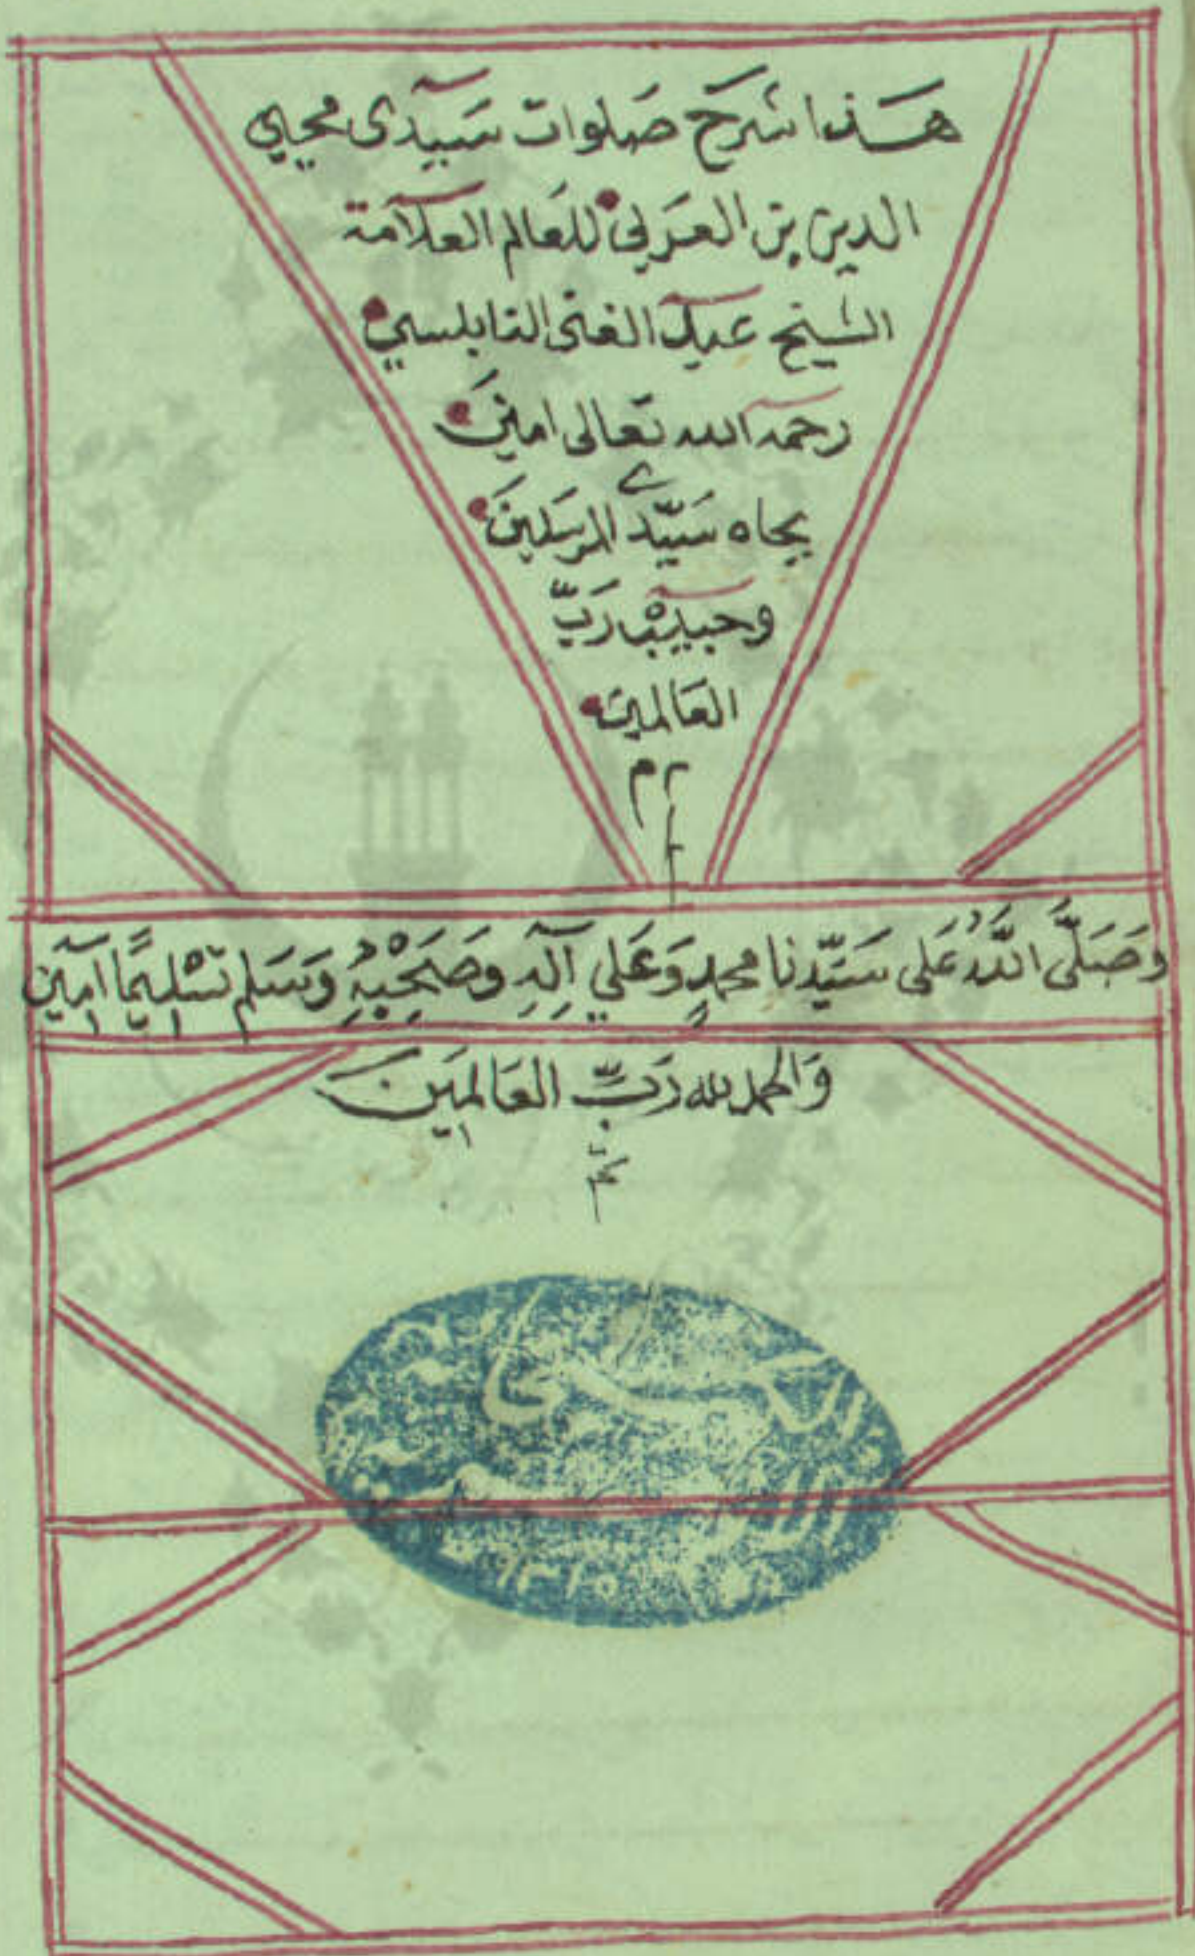 هَذا شَرح صَلوات سَيّدى محيي
الدين بن العَربي للعَالم العَلاّمة
الشيخ عَبد الغنى النابلسي
رحمه الله تعَالى امين
بجاه سَيّد المرسَلينَ
وحَبيبْ رَبّ
العَالمين
م
وَصَلَّى اللَّهُ عَلى سَيّدنا محمدٍ وَعَلي آلهِ وَصَحْبِهِ وَسَلم تَسْليمًا آمين
وَالحمد لله رَبِّ العَالَمِين
تم
١٣١٥